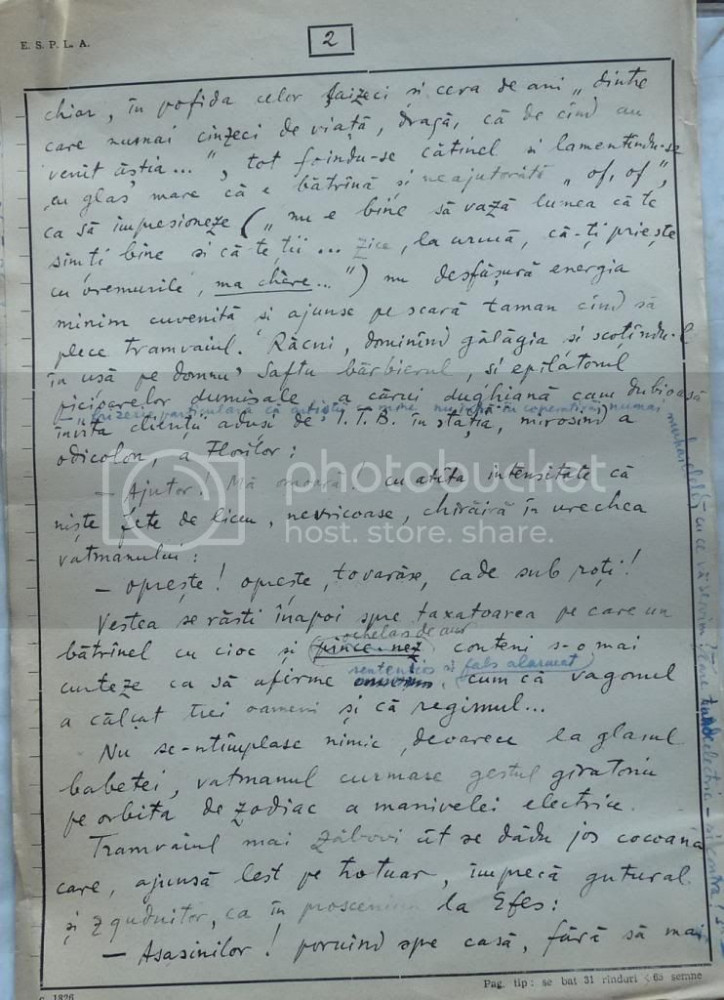 E. S. P. L. A.
2
chiar, în pofida celor șaizeci și ceva de ani „dintre
care numai cinzeci de viață, dragă, că de cînd au
venit ăștia...”, tot foindu-se cătinel și lamentîndu-se
cu glas mare că e bătrînă și neajutorată „of, of”,
ca să impresioneze („nu e bine să vază lumea că te
simți bine și că te ții... zice, la urmă, că-ți priește
cu vremurile, ma chère...”) nu desfășură energia
minim cuvenită și ajunse pe scară taman cînd să
plece tramvaiul. Răcni, dominînd gălăgia și scoțîndu-l
în ușă pe domnu' Saftu bărbierul, și epilatorul
picioarelor dumisale, a cărui dugheană cam dubioasă
frizerie particulară că artiștii
numai
învita clienții aduși de I.T.B. în stație, mirosind a
odicolon, a Florilor:
— Ajutor! Mă omoară! cu atîta intensitate că
niște fete de liceu, nevricoase, chirăiră în urechea
vatmanului:
— Oprește! oprește, tovarășe, cade sub roți!
Vestea se răsti înapoi spre taxatoarea pe care un
ochelari de aur
bătrînel cu cioc și pince-nez conteni s-o mai
sentențios și fals alarmat
curteze ca să afirme cum că vagonul
a călcat trei oameni și că regimul...
Nu se-ntîmplase nimic, deoarece la glasul
babetei, vatmanul curmase gestul giratoriu
pe orbita de zodiac a manivelei electrice.
Tramvaiul mai zăbovi cît se dădu jos cocoana
care, ajunsă lest pe trotuar, împrecă gutural
și zguduitor, ca în prosceniu la Efes:
— Asasinilor! pornind spre casă, fără să mai
Pag. tip: se bat 31 rînduri × 65 semne
c. 1826
photobucket
host. store. share.